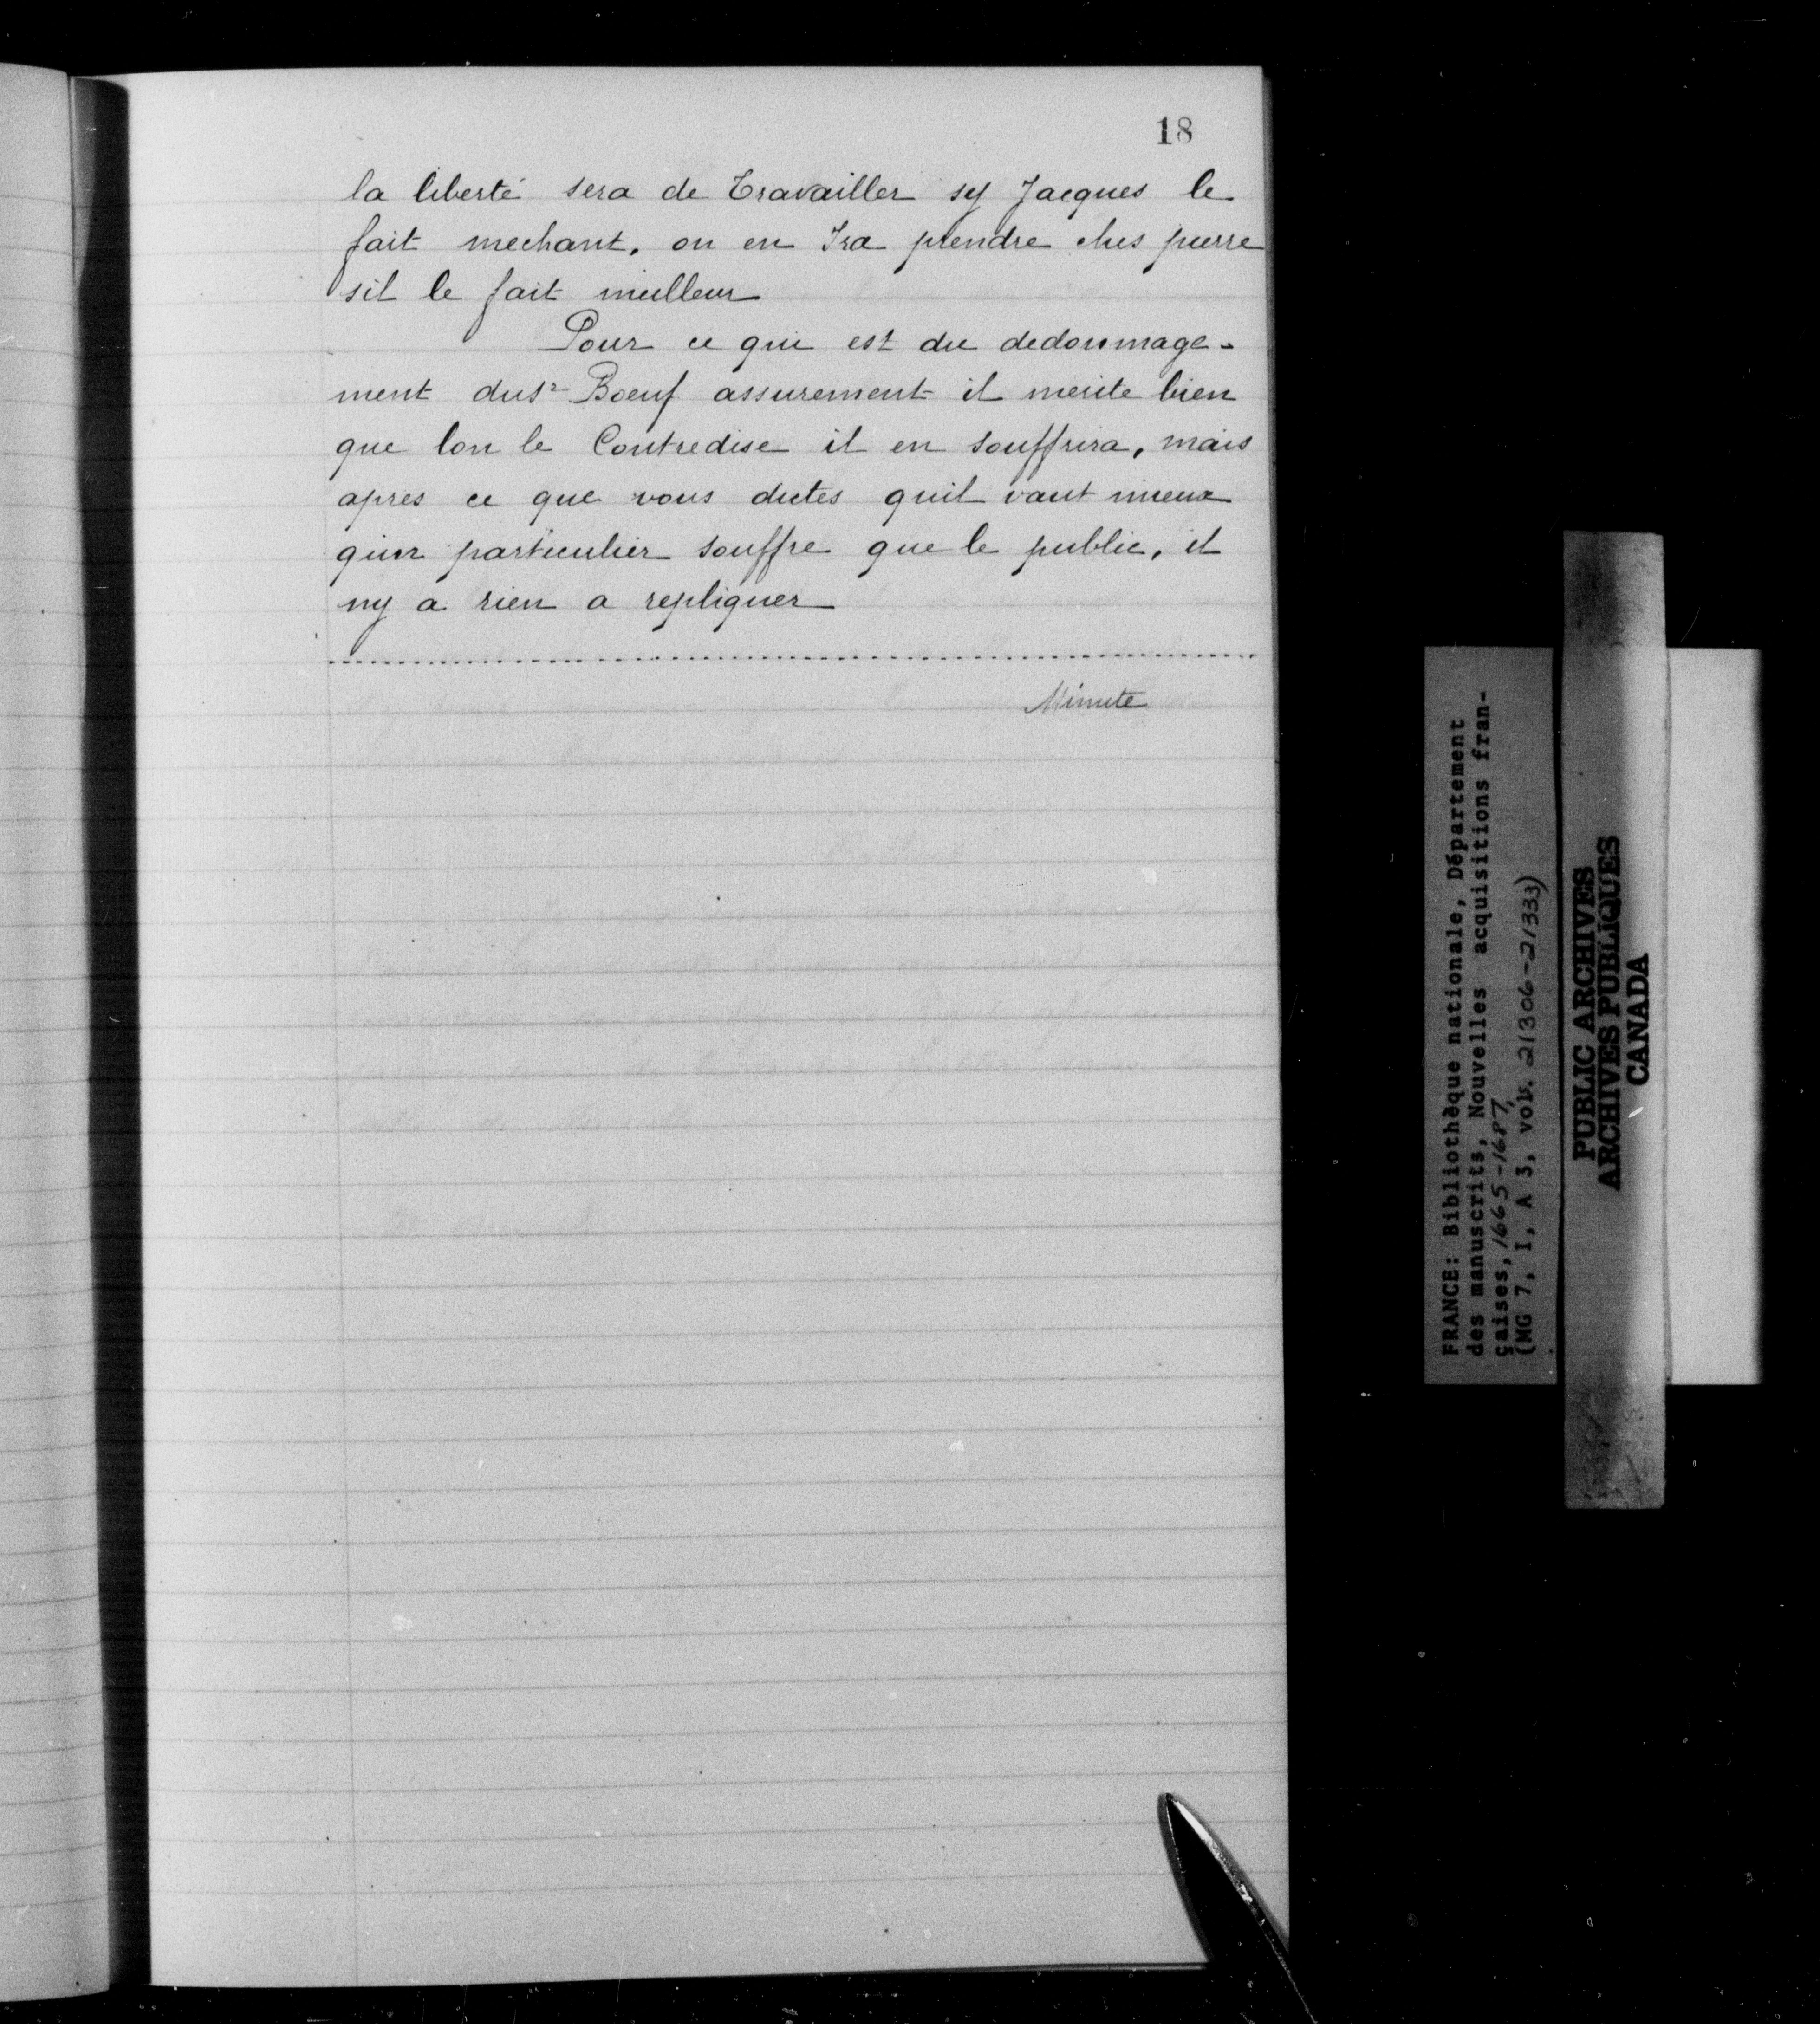 18
la liberté sera de Travailler sy Jacques le
fait mechant. on en Ira prendre ches pierre
sil le fait meilleur
Pour ce qui est du dedommage-
ment du sr Bœuf assurement il merite bien
que lon le Contredise il en souffrira, mais
apres ce que vous dictes quil vaut mieux
quun particulier souffre que le public, il
ny a rien a repliquer
Minute
FRANCE: Bibliothèque nationale, Département
des manuscrits, Nouvelles acquisitions fran-
çaises, 1665-1687,
(MG 7, I, A 3, vols. 21306-21333)
PUBLIC ARCHIVES
ARCHIVES PUBLIQUES
CANADA